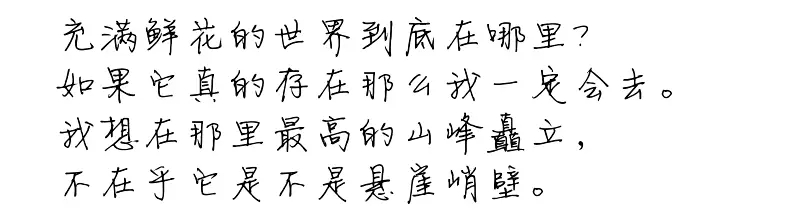 充满鲜花的世界到底在哪里?
如果它真的存在那么我一定会去。
我想在那里最高的山峰矗立,
不在乎它是不是悬崖峭壁。